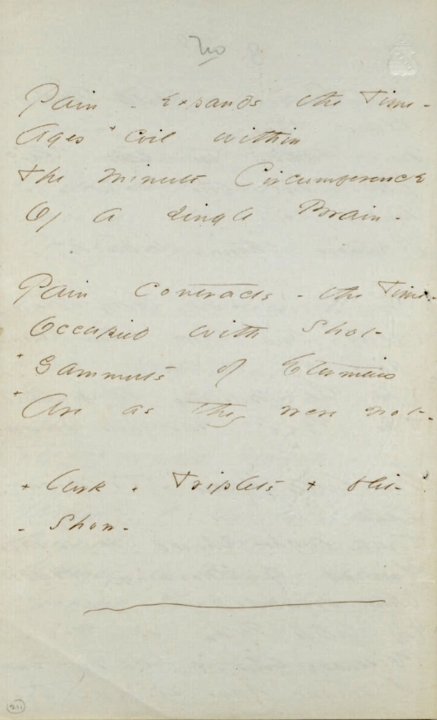 Pain - expands the Time -
Ages + coil within
The minute Circumference
Of a single Brain -
Pain contracts - the Time -
Occupied with Shot -
+ Gammuts of Eternities
+ Are as they were not -
+ lurk + Triplets + flit -
- Show -